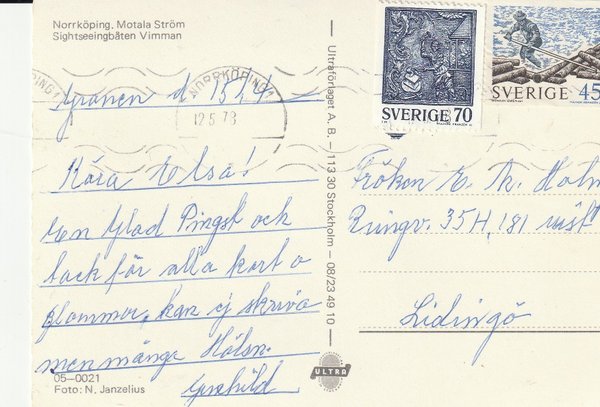 Norrköping, Motala Ström
Sightseeingbåten Vimman
Granen d 15/4
NORRKÖPING 1
12.5.78
Kära Elsa!
En Glad Pingst och
tack för alla kort o
blommor, kan ej skriva
men många Hälsn.
Gunhild
05-0021
Foto: N. Janzelius
Ultraförlaget A.B. – 113 30 Stockholm – 08/23 49 10
ULTRA
SVERIGE 70
SVERIGE 45
Fröken E. M. Holm
Ringv. 35H, 181
Lidingö